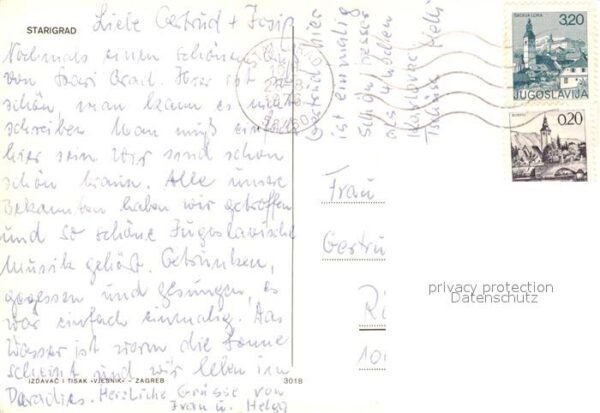 STARIGRAD
Liebe Gertrud + Josip
Nochmals einen schönen Gruß
von Stari Grad. Hier ist so
schön, man kann es nicht
schreiben Man muß einfach
hier sein. Wir sind schon
schön braun. Alle unsere
Bekannten haben wir getroffen
und so schöne Jugoslavische
Musik gehört. Getrunken,
gegessen und gesungen, es
war einfach einmalig. Das
Wasser ist warm die Sonne
scheint und wir leben im
Paradies. Herzliche Grüsse von
Frau u.
IZDAVAČ I TISAK »VJESNIK« – ZAGREB
3018
Gertrud hier
ist einmalig
Schön besser
als 4 Wochen
Karlovac
Tschüss
ŠKOFJA LOKA
3,20
JUGOSLAVIJA
BOHINJ
0,20
Frau
Gertru
Ri
10
privacy protection
Datenschutz